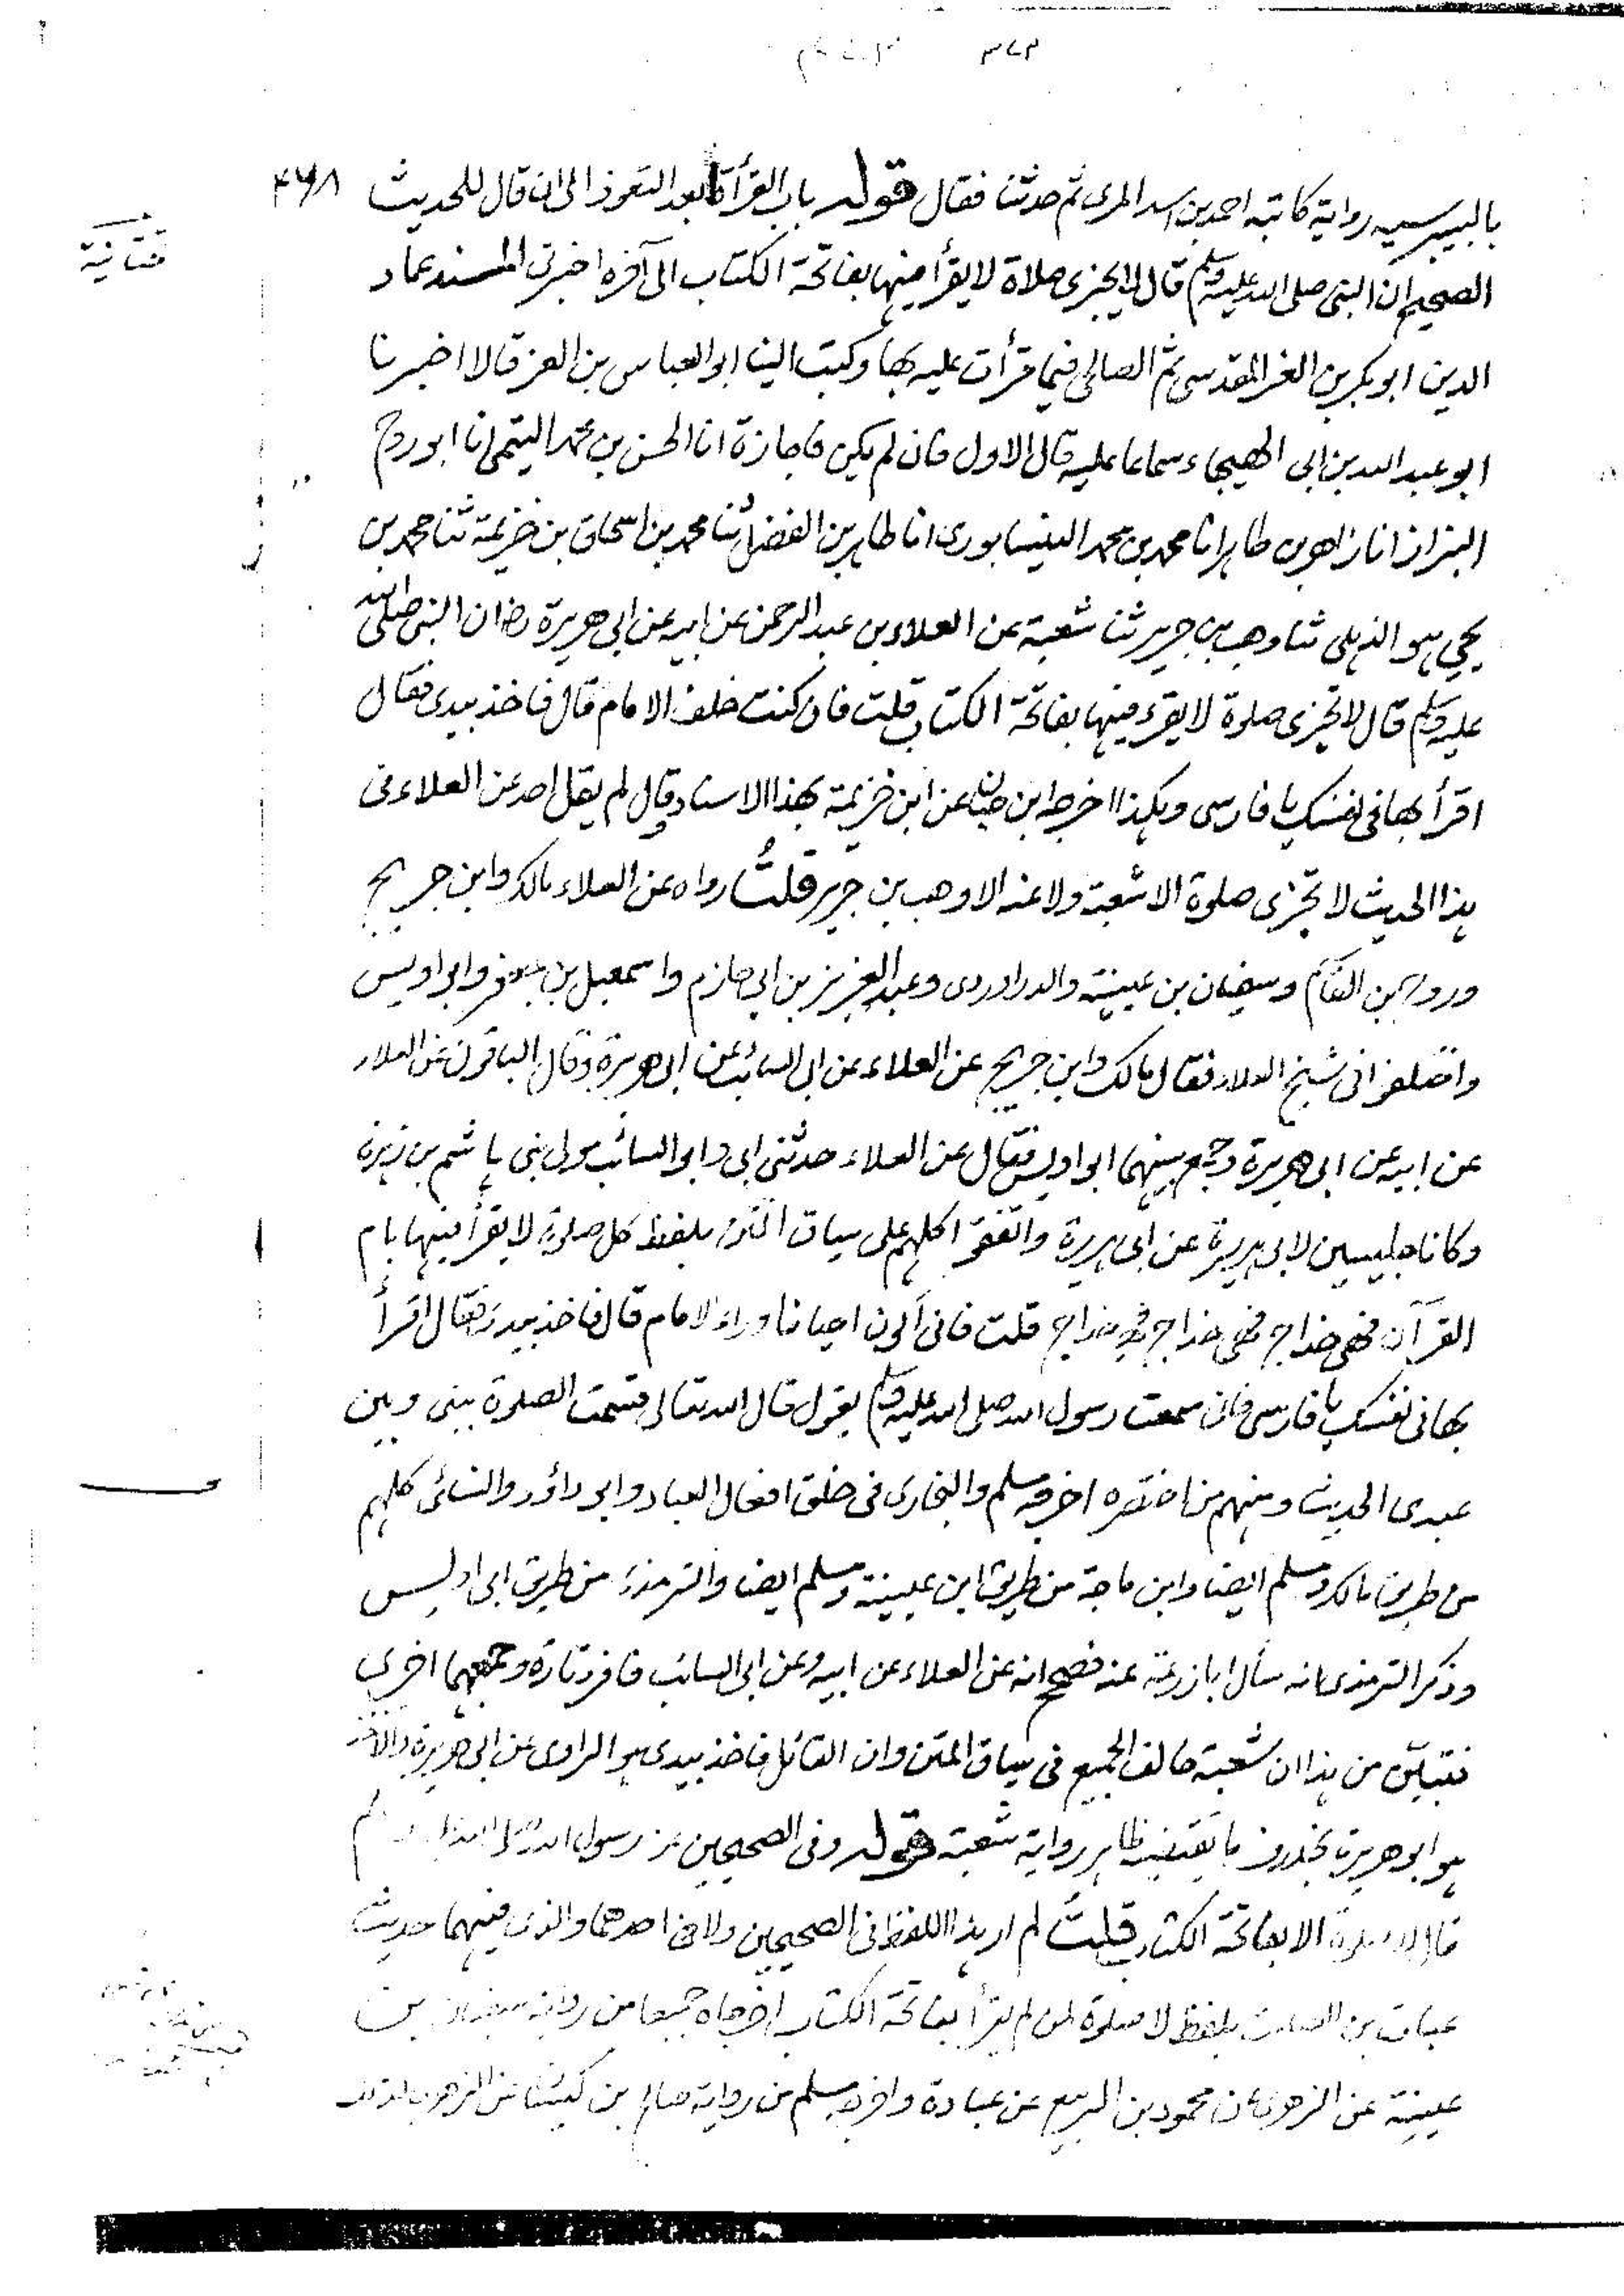 ٣٧٣
بالبيبرسيه رواية كاتبه احمد بن اسد المرى ثم حدثنا فقال قوله باب القرأة بعد التعوذ الى ان قال للحديث ٤٦٨
الصحيح ان النبى صلى الله عليه وسلم قال لا يجزى صلاة لا يقرأ فيها بفاتحة الكتاب الى آخره اخبرنى المسند عماد
الدين ابو بكر بن العز المقدسى ثم الصالحى فيما قرأت عليه بها وكتب الينا ابو العباس بن العز قالا اخبرنا
ابو عبد الله بن ابى الهيجاء سماعا عليه قال الاول فان لم يكن فاجازة انا الحسن بن محمد التيمى انا ابو روح
البزاز انا زاهر بن طاهر انا محمد بن محمد النيسابورى انا طاهر بن الفضل ثنا محمد بن اسحاق بن خزيمة ثنا محمد بن
يحيى هو الذهلى ثنا وهب بن جرير ثنا شعبة عن العلاء بن عبد الرحمن عن ابيه عن ابى هريرة رض ان النبى صلى الله
عليه وسلم قال لا تجزى صلوة لا يقرء فيها بفاتحة الكتاب قلت فان كنت خلف الامام قال فاخذ بيدى فقال
اقرأ بها فى نفسك يا فارسى وهكذا اخرجه ابن حبان عن ابن خزيمة بهذا الاسناد وقال لم يقل احد عن العلاء فى
هذا الحديث لا تجزى صلوة الا شعبة ولا عنه الا وهب بن جرير قلتُ رواه عن العلاء مالك وابن جريج
وروح بن القاسم وسفيان بن عيينة والدراوردى وعبد العزيز بن ابى حازم واسمعيل بن جعفر وابو اويس
واختلفوا فى شيخ العلاء فقال مالك وابن جريج عن العلاء عن ابى السائب عن ابى هريرة وقال الباقون عن العلاء
عن ابيه عن ابى هريرة وجمع بينهما ابو اويس فقال عن العلاء حدثنى ابى وابو السائب مولى بنى هاشم بن زهرة
وكانا جليسين لابى هريرة عن ابى هريرة واتفقوا كلهم على سياق المتن بلفظ كل صلوة لا يقرأ فيها بام
القرآن فهى خداج فهى خداج فهى خداج قلت فانى اكون احيانا وراء الامام قال فاخذ بيدى فقال اقرأ
بها فى نفسك يا فارسى فانى سمعت رسول الله صلى الله عليه وسلم يقول قال الله تعالى قسمت الصلوة بينى وبين
عبدى الحديث ومنهم من اختصره اخرجه مسلم والبخارى فى خلق افعال العباد وابو داؤد والنسائى كلهم
من طريق مالك ومسلم ايضا وابن ماجة من طريق ابن عيينة ومسلم ايضا والترمذى من طريق ابى اويس
وذكر الترمذى انه سأل ابا زرعة عنه فصحح انه عن العلاء عن ابيه وعن ابى السائب فافرد تارة وجمعهما اخرى
فتبيّن من هذا ان شعبة خالف الجميع فى سياق المتن وان القائل فاخذ بيدى هو الراوى عن ابى هريرة والآخذ
هو ابو هريرة بخلاف ما يقتضيه ظاهر رواية شعبة قوله وفى الصحيحين عن رسول الله صلى الله عليه وسلم
قال لا صلوة الا بفاتحة الكتاب قلتُ لم ار هذا اللفظ فى الصحيحين ولا فى احدهما والذى فيهما حديث
عبادة بن الصامت بلفظ لا صلوة لمن لم يقرأ بفاتحة الكتاب اخرجاه جميعا من رواية سفيان بن
عيينة عن الزهرى عن محمود بن الربيع عن عبادة واخرجه مسلم من رواية صالح بن كيسان عن الزهرى